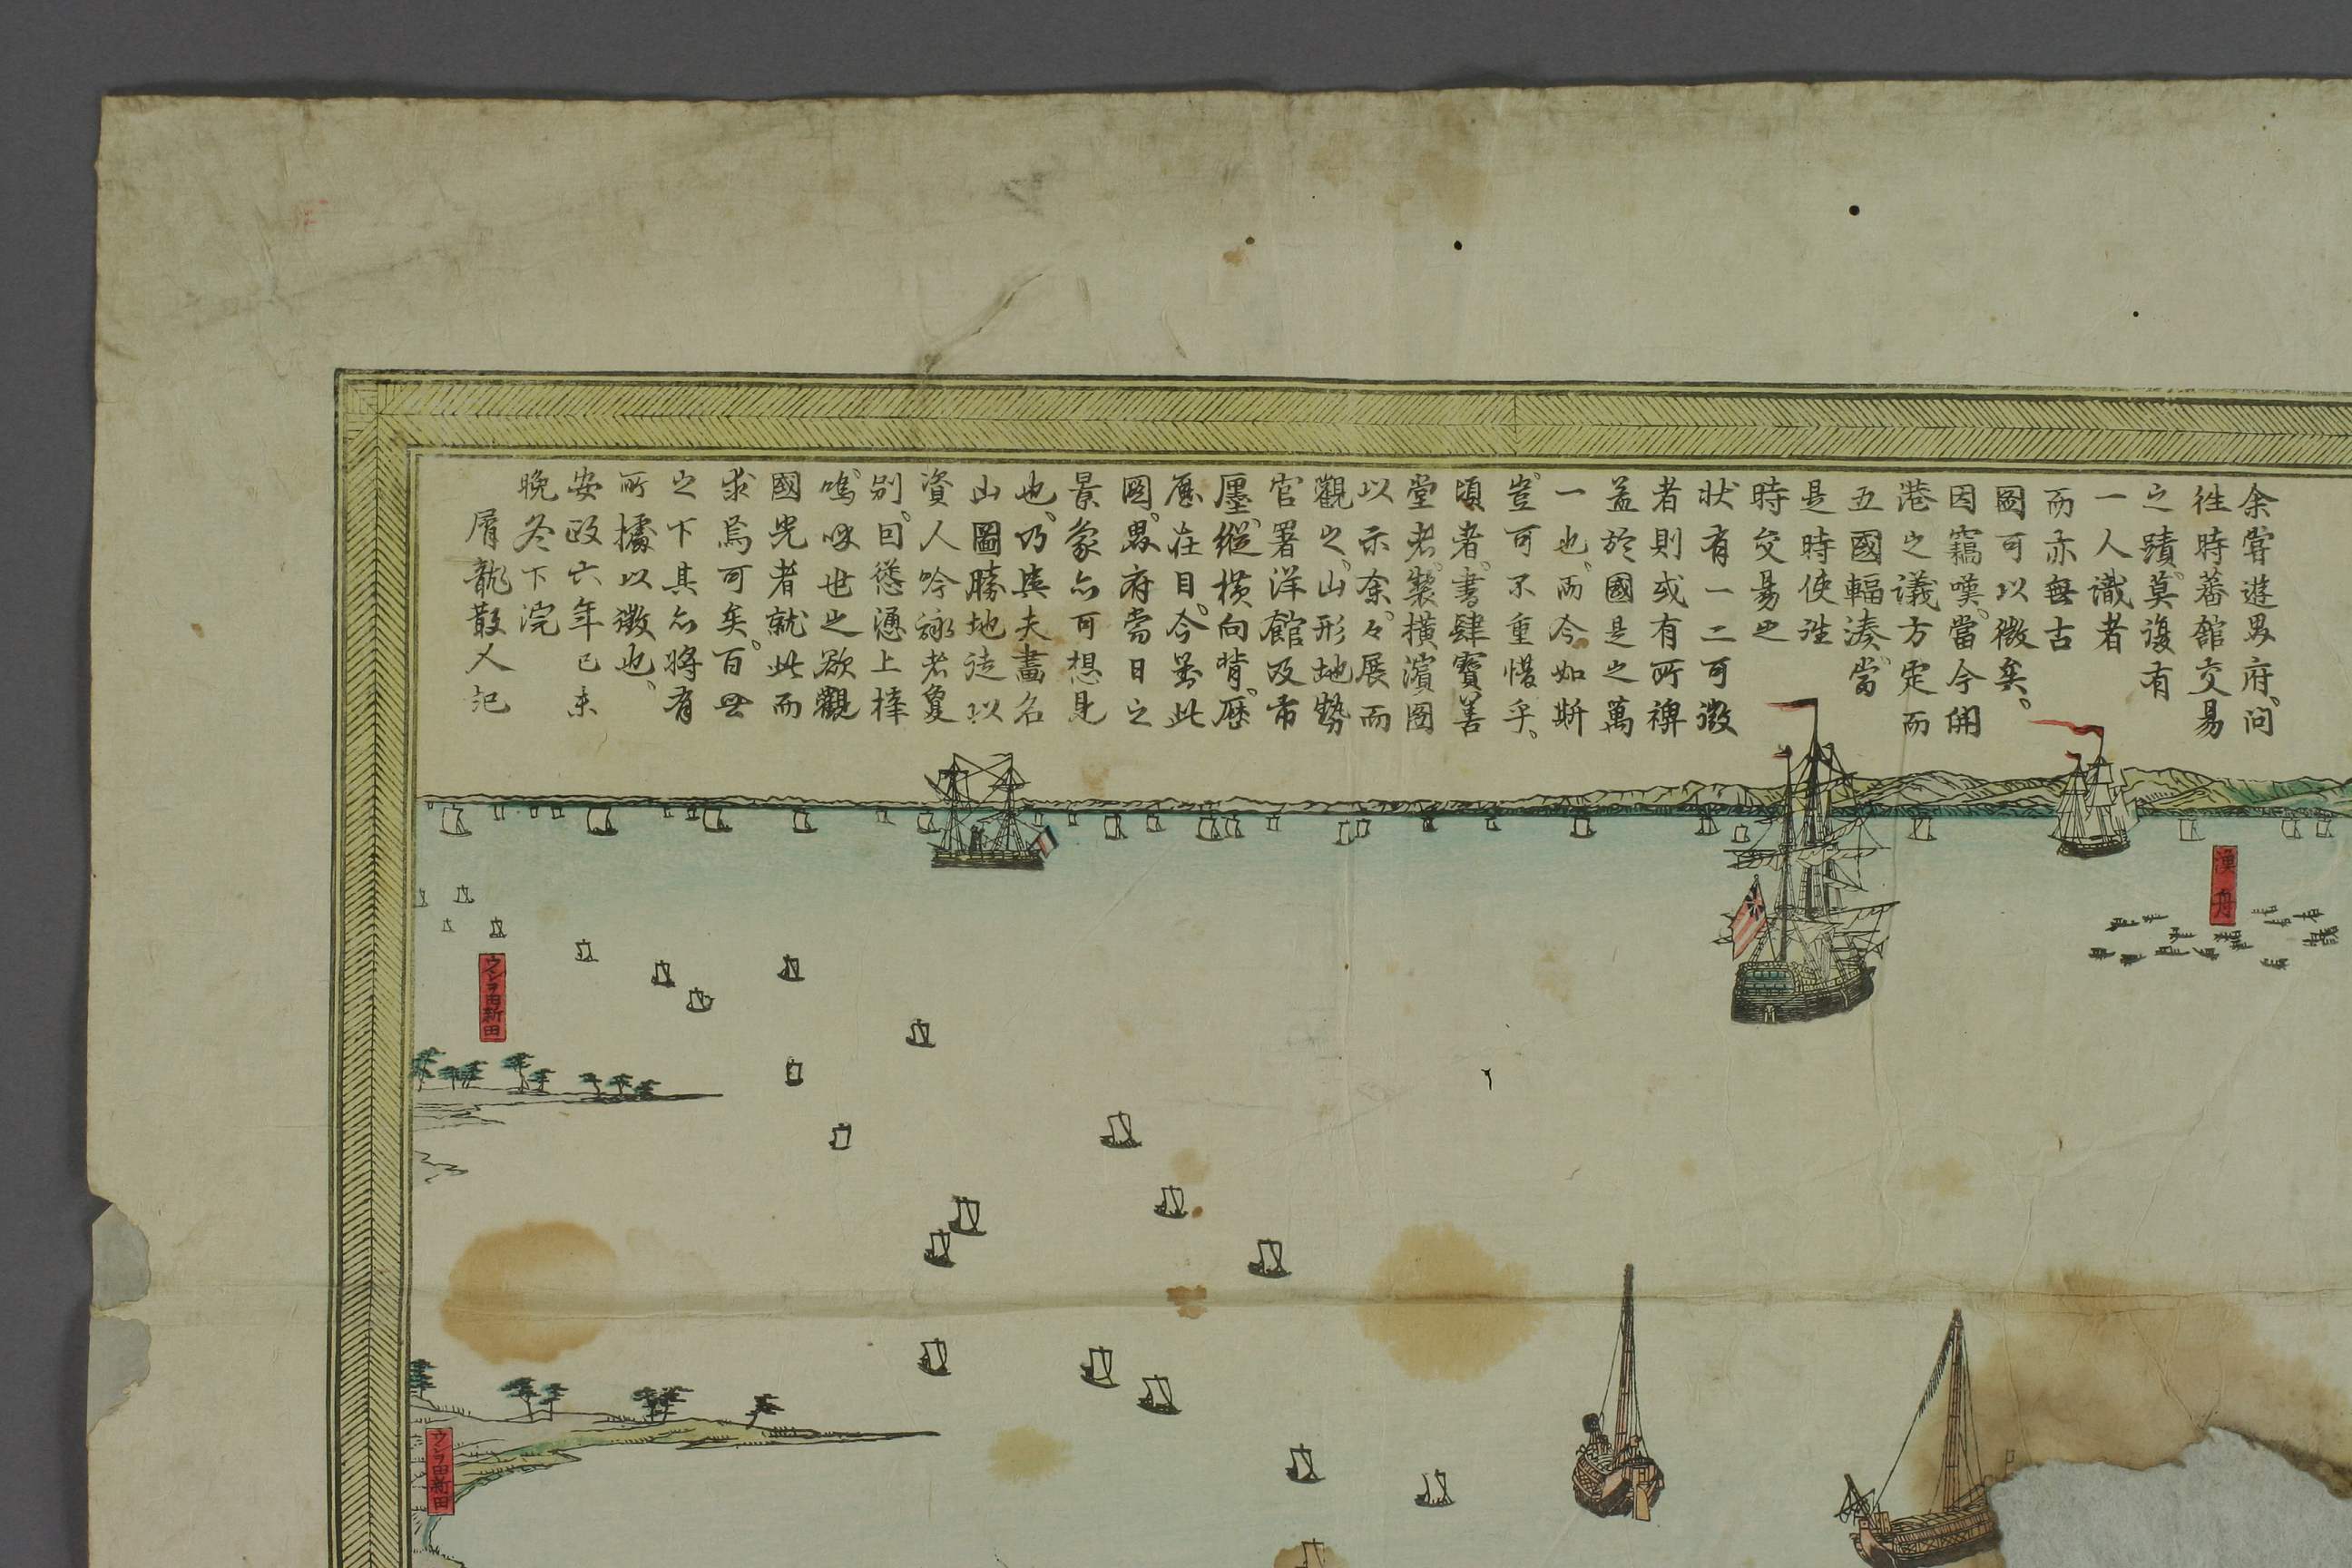 余嘗遊男府、問
徃時蕃舘交易
之蹟、莫復有
一人識者
而亦無古
圖可以徴矣。
因竊嘆。當今開
港之議方定而
五國輻湊、當
是時使徃
時交易之
狀有一二可徴
者則或有所裨
益於國是之萬
一也、而今如斯
豈可不重惜乎。
頃者、書肆寳善
堂老、製横濱圖
以示余。々展而
觀之、山形地勢
官署洋館及市
廛、縱横向背、歴
歴在目。今畧此
圖、男府當日之
景象亦可想見
也。乃與夫畵名
山圖勝地徒以
資人吟詠者敻
別。因慫慂上梓
嗚呼世之欲觀
國光者就此而
求焉可矣。百世
之下其亦將有
所據以徴也、
安政六年己未
晩冬下浣
屑龍散人記
漁舟
ウシヲ田新田
ウシヲ田新田